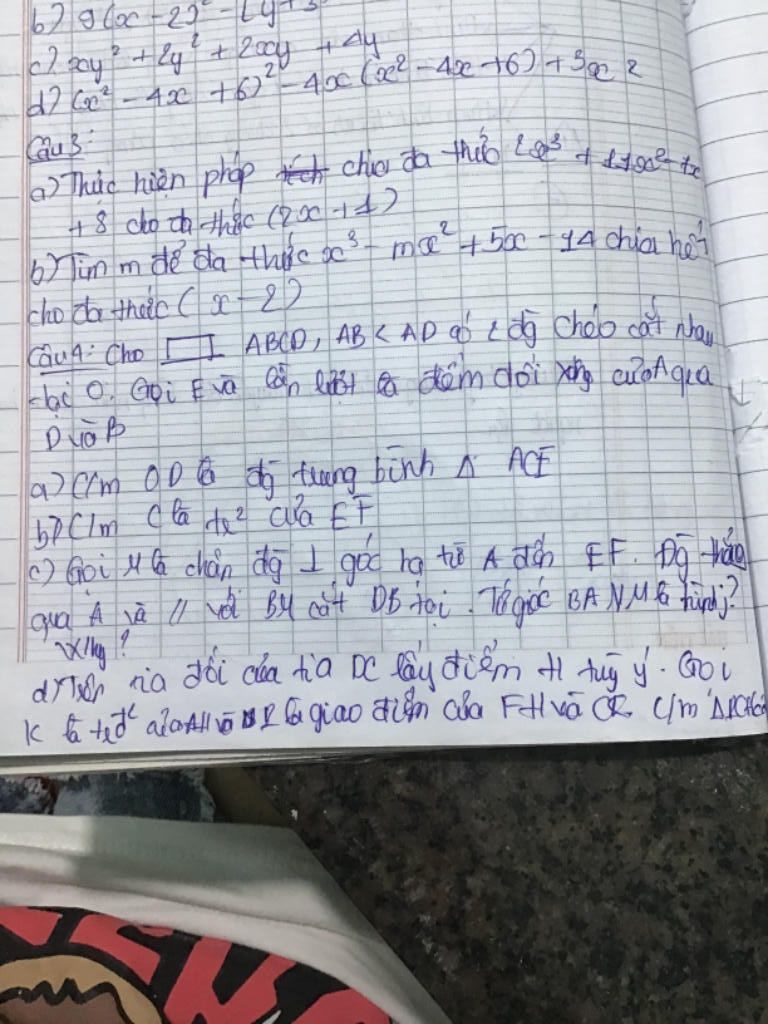 b) 9(x - 2)² - (y + 3
c) xy² + 2y² + 2xy + 4y
d) (x² - 4x + 6)² - 4x (x² - 4x + 6) + 3x²
Câu 3:
a) Thực hiện phép chia đa thức 2x³ + 11x²
+ 8 cho đa thức (2x + 1)
b) Tìm m để đa thức x³ - mx² + 5x - 14 chia hết
cho đa thức (x - 2)
Câu 4: Cho ▭ ABCD, AB < AD có 2 đg chéo cắt nhau
tại O. Gọi E và lần lượt là điểm đối xứng của A qua
D và B
a) C/m OD là đg trung bình Δ ACE
b) C/m C là của EF
c) Gọi M là chân đg ⊥ góc hạ từ A đến EF. Đg thẳng
qua A và // với BM cắt DB tại . Tứ giác BANM là hình j?
Vì sao?
d) Trên tia đối của tia DC lấy điểm H tuỳ ý. Gọi
K là của AH và I là giao điểm của FH và C/m